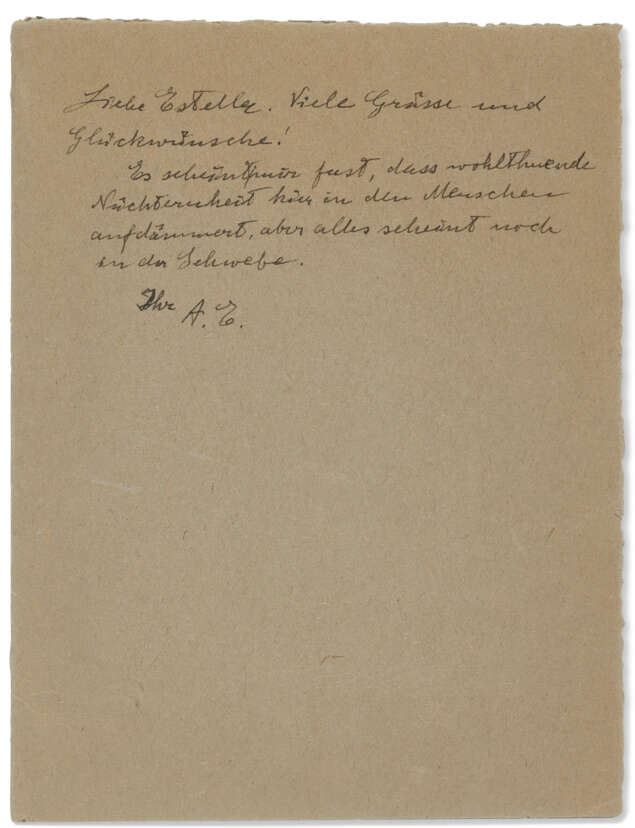 Liebe Estella. Viele Grüsse und
Glückwünsche!
Es scheint mir fast, dass wohlthuende
Nüchternheit hier in den Menschen
aufdämmert, aber alles scheint noch
in der Schwebe.
Ihr A. E.